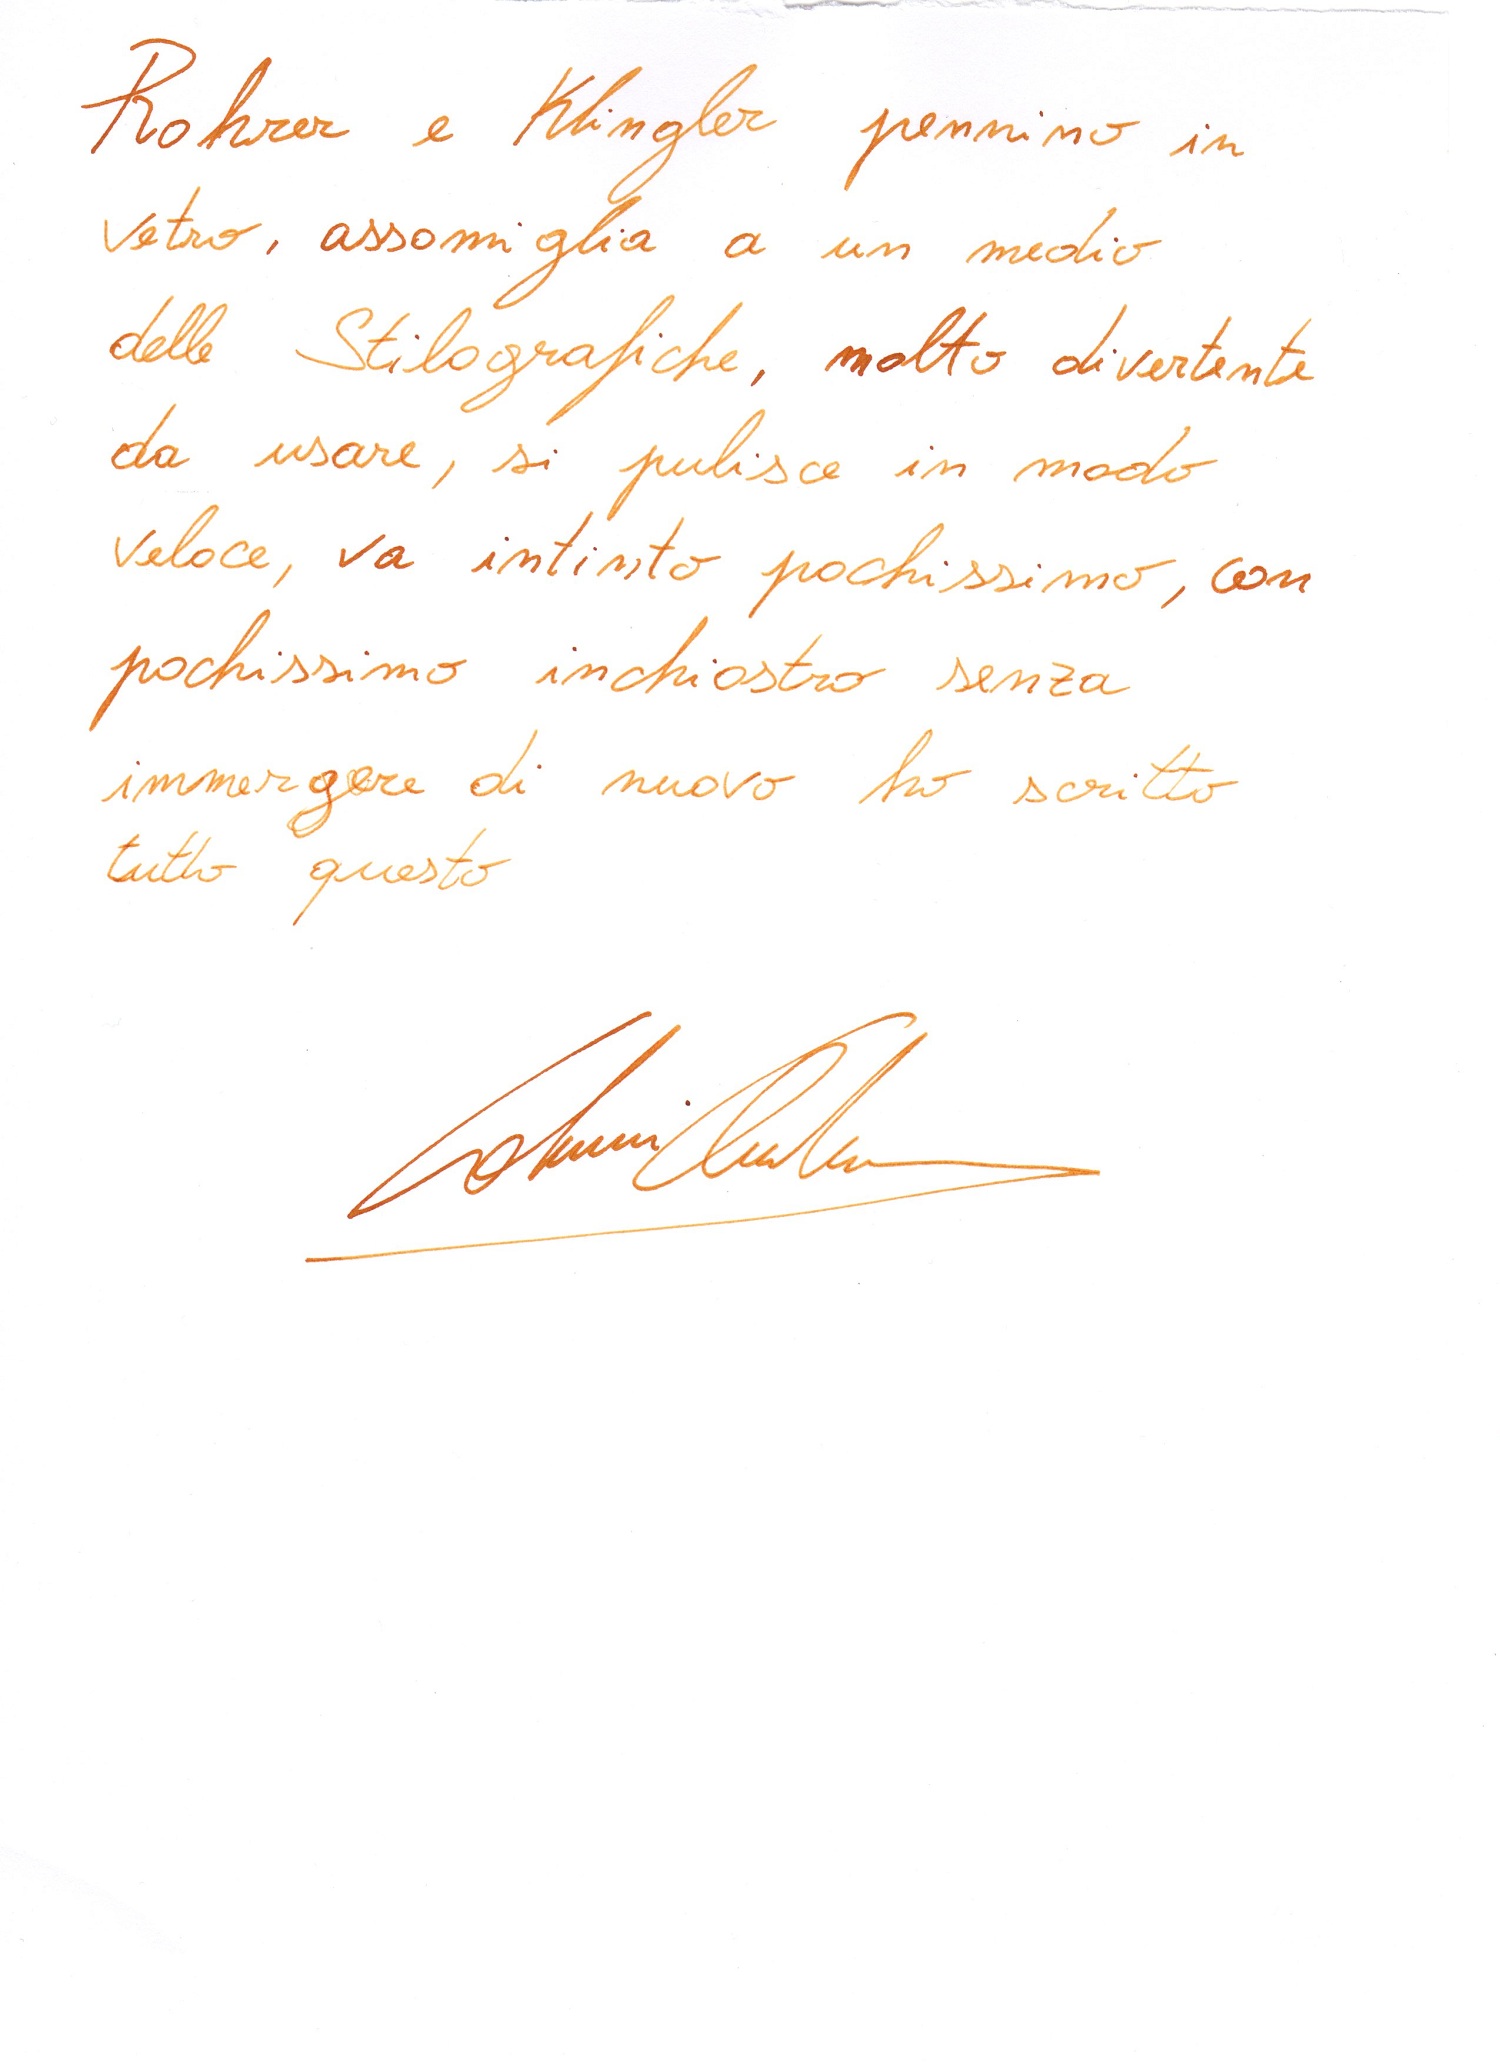 Rohrer e Klingler pennino in
vetro, assomiglia a un medio
delle Stilografiche, molto divertente
da usare, si pulisce in modo
veloce, va intinto pochissimo, con
pochissimo inchiostro senza
immergere di nuovo ho scritto
tutto questo